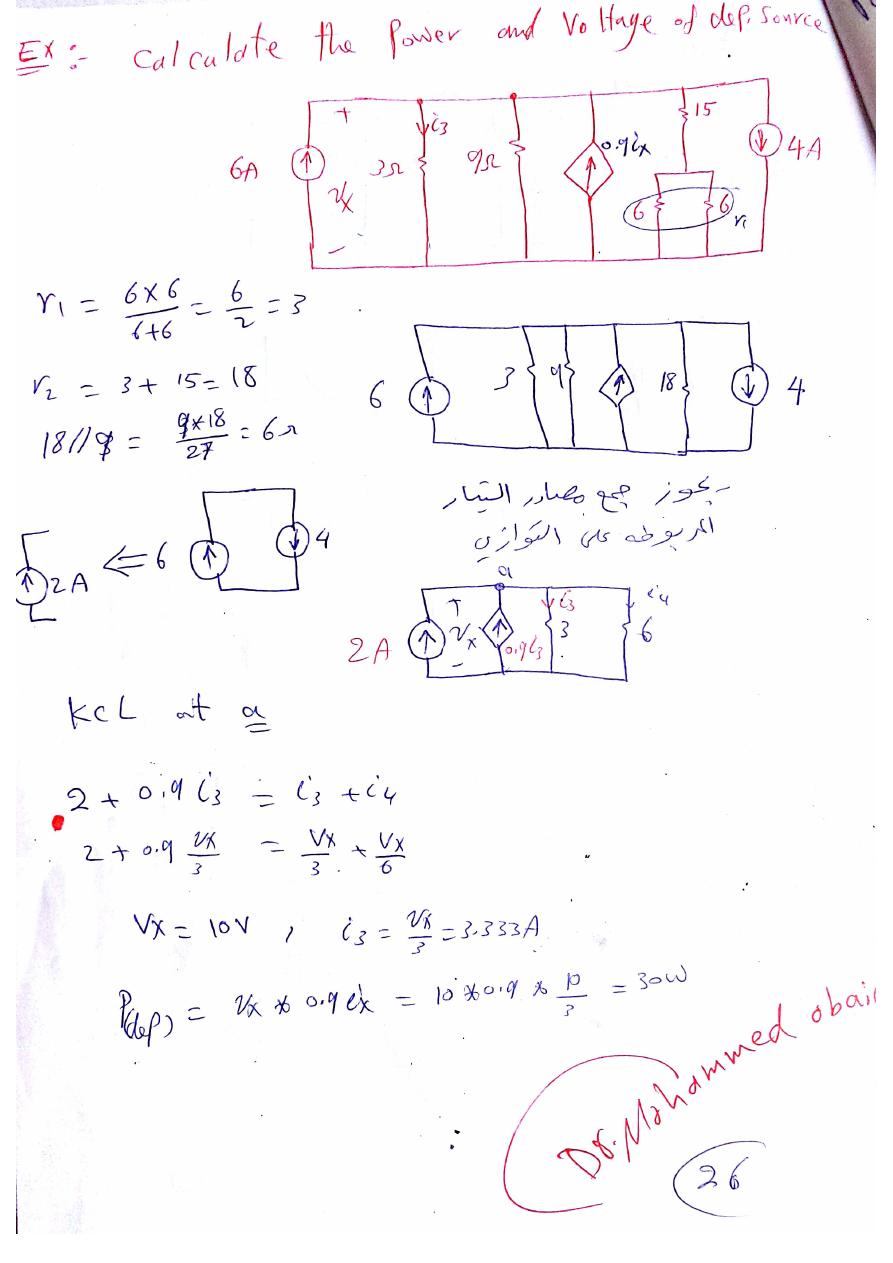 Ex :- Calculate the Power and Voltage of dep. source
6A
+
Vx
-
i3
3Ω
9Ω
0.9ix
15
6
6
r1
4A
r1 = 6×6/6+6 = 6/2 = 3
r2 = 3 + 15 = 18
18//9 = 9×18/27 = 6Ω
6
3
9
18
4
يجوز جمع مصادر التيار
المربوطه على التوازي
2A ⇐ 6
4
a
2A
+
Vx
-
0.9i3
i3
3
i4
6
KCL at a
2 + 0.9 i3 = i3 + i4
2 + 0.9 Vx/3 = Vx/3 + Vx/6
Vx = 10V , i3 = Vx/3 = 3.333A
P(dep) = Vx * 0.9 ix = 10 * 0.9 * 10/3 = 30W
Dr. Mohammed obai
26